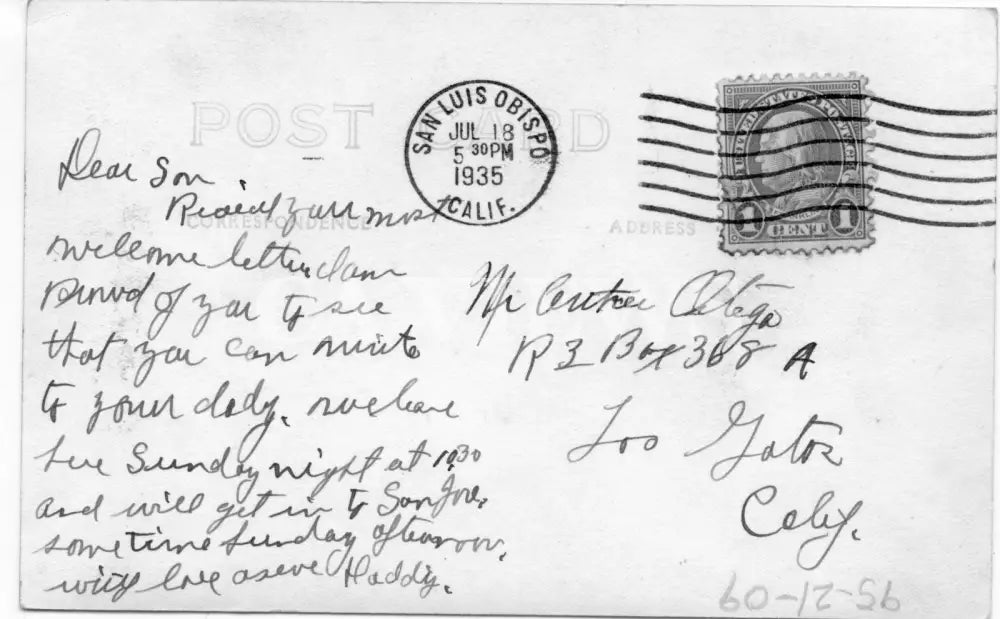 POST CARD
SAN LUIS OBISPO
JUL 18
5 30 PM
1935
CALIF.
1 CENT 1
CORRESPONDENCE
ADDRESS
Dear Son.
your most
welcome letter
proud of you to see
that you can write
to your dady. we leave
here Sunday night at 10,30
and will get in to San Jose,
some time Sunday afternoon.
love Daddy.
Mr Ortega
R 3 Box 368 A
Los Gatos
Calif.
60-12-56